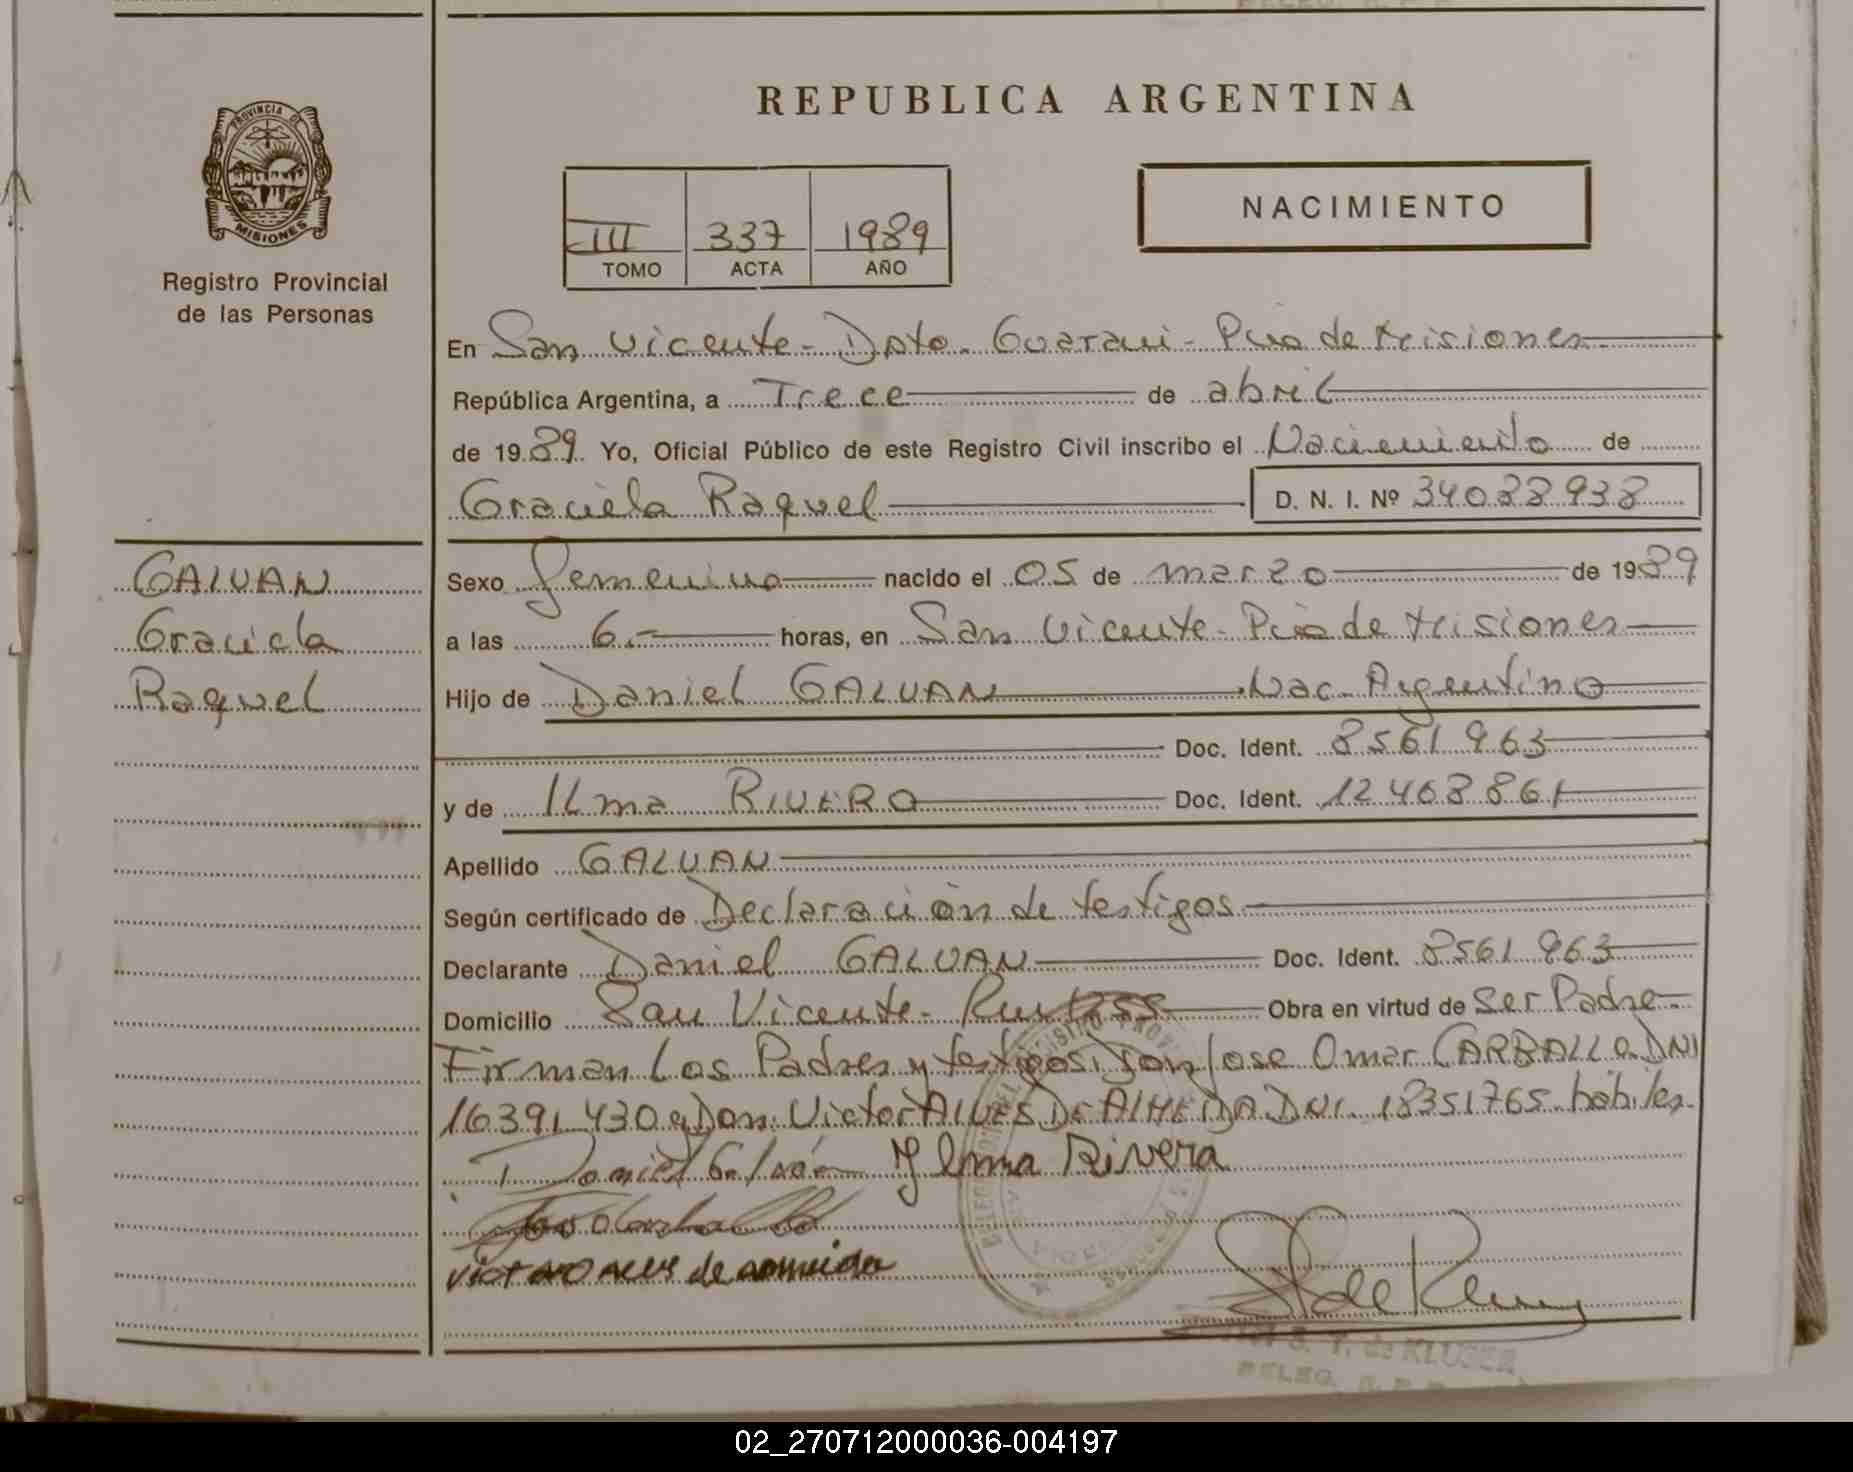 REPUBLICA ARGENTINA
PROVINCIA DE
MISIONES
Registro Provincial
de las Personas
III 337 1989
TOMO ACTA AÑO
NACIMIENTO
En San Vicente - Dpto. Guarani - Pcia de Misiones
República Argentina, a Trece de abril
de 1989 Yo, Oficial Público de este Registro Civil inscribo el Nacimiento de
Graciela Raquel D. N. I. Nº 34088938
GALVAN
Graciela
Raquel
Sexo femenino nacido el 05 de marzo de 1989
a las 6.- horas, en San Vicente - Pcia de Misiones
Hijo de Daniel GALVAN Nac. Argentino
Doc. Ident. 8561963
y de Ilma RIVERO Doc. Ident. 12468861
Apellido GALVAN
Según certificado de Declaración de testigos
Declarante Daniel GALVAN Doc. Ident. 8561963
Domicilio San Vicente - Obra en virtud de Ser Padre
Firman los Padres y testigos: Don Jose Omar CARBALLO DNI
16391430 y Don Victor ALVES DE ALMEIDA DNI. 18351765 hábiles.
Daniel Galván Ylma Rivera
de almeida
S. T. de KLUSER
DELEG. R. P. P.
02_270712000036-004197